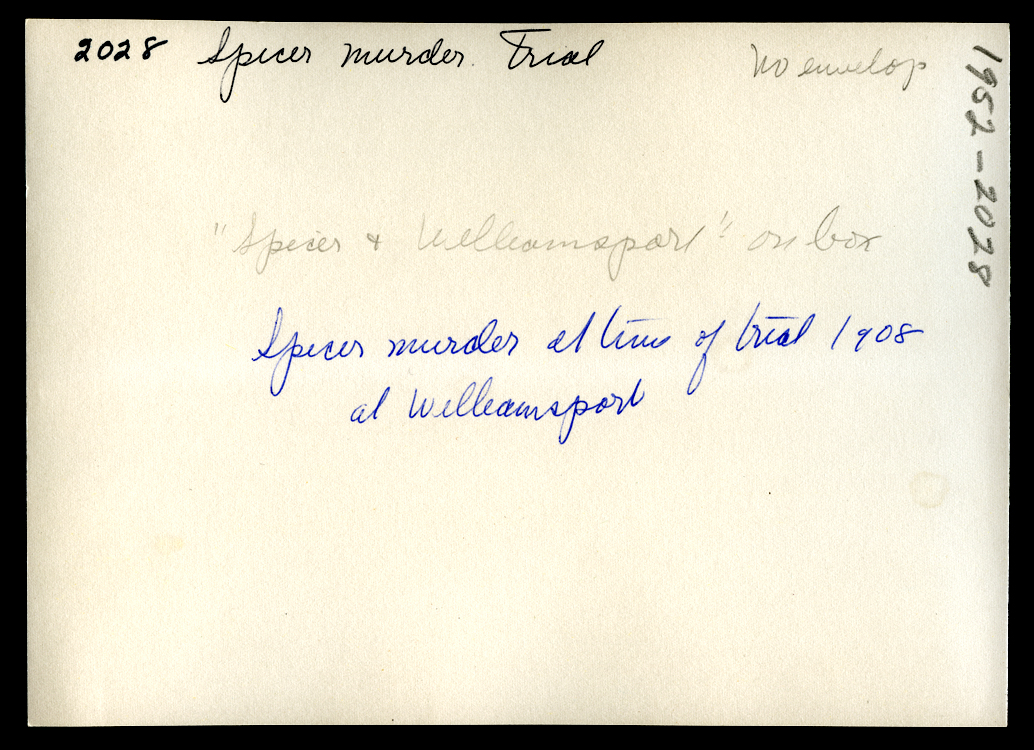 2028 Spicer murder Trial
No envelop
1952-2028
"Spicer & Williamsport" on box
Spicer murder at time of trial 1908
at Williamsport